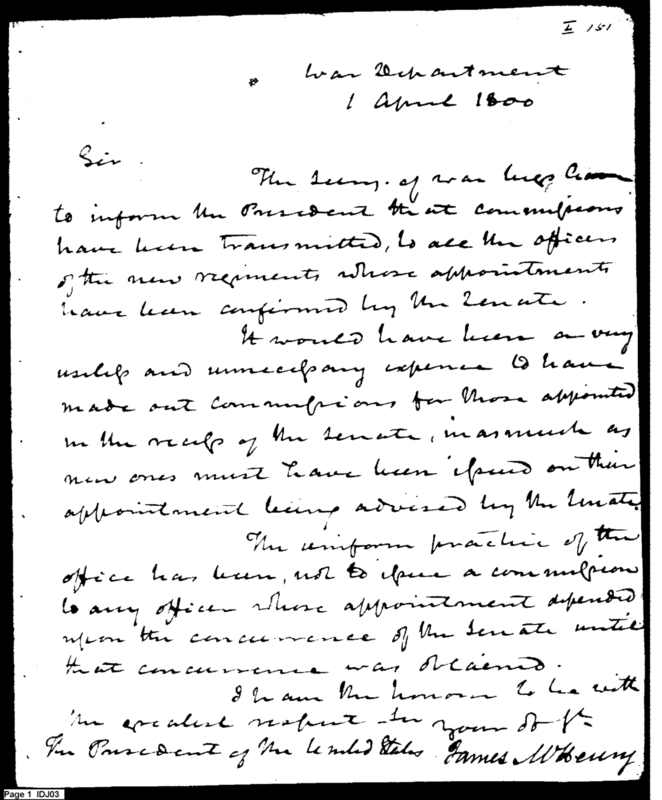 I 151
War Department
1 April 1800
Sir.
The Secry. of war begs leave
to inform the President that commissions
have been transmitted, to all the officers
of the new regiments whose appointments
have been confirmed by the Senate.
It would have been a very
useless and unnecessary expence to have
made out commissions for those appointed
in the recess of the Senate, in as much as
new ones must have been issued on their
appointment being advised by the Senate.
The uniform practice of the
office has been, not to issue a commission
to any officer whose appointment depended
upon the concurrence of the Senate until
that concurrence was obtained.
I have the honour to be with
the greatest respect Sir your ob St.
The President of the United States James McHenry
Page 1 IDJ03